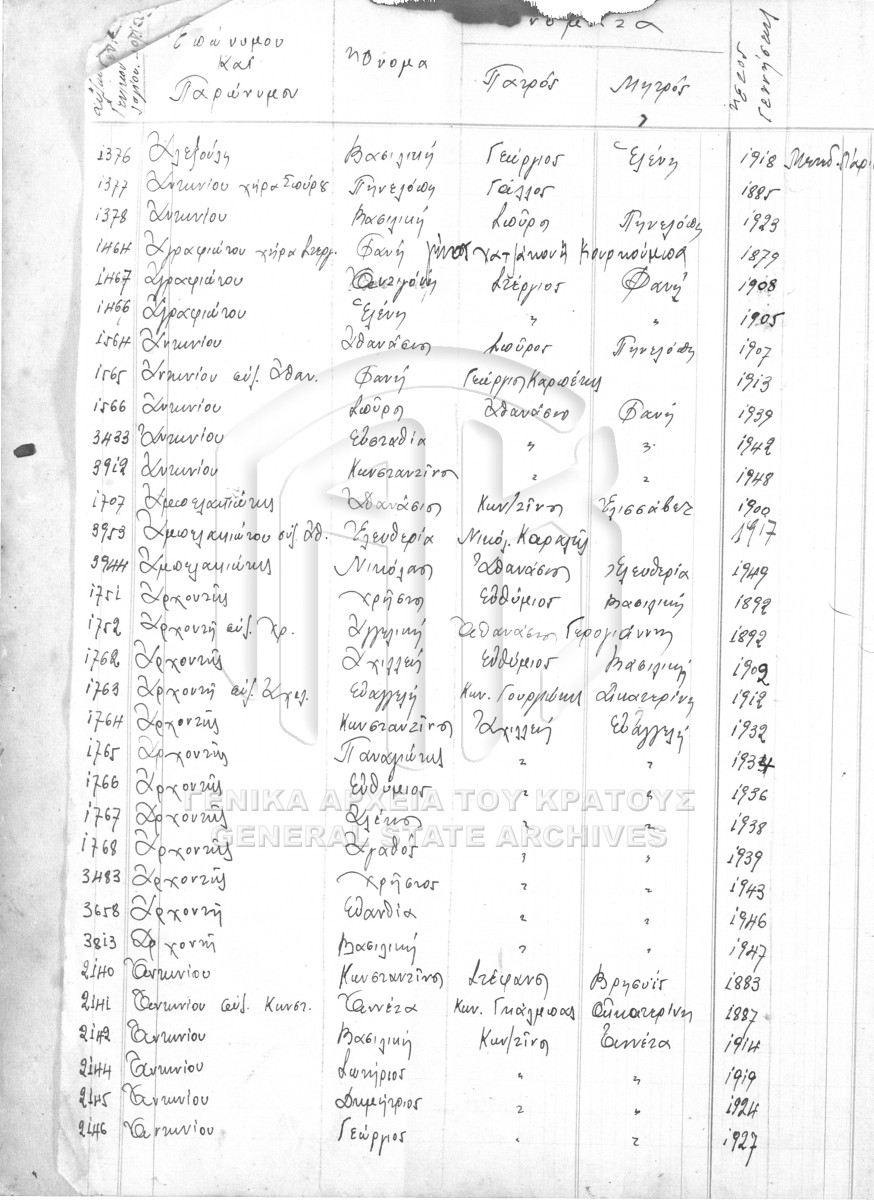 Ὀνόματα
Ἐπώνυμον Ὄνομα
καὶ
Παρώνυμον Πατρός Μητρός ἔτος γεννήσεως
1376 Ἀλεξούλη Βασιλική Γεώργιος Ἑλένη 1918
1377 Ἀντωνίου χήρα Σπύρου Πηνελόπη Γάλλος 1885
1378 Ἀντωνίου Βασιλική Σπῦρος Πηνελόπη 1923
1464 Ἀγραφιώτου χήρα Στεργ. Φανή 1879
1467 Ἀγραφιώτου Ἀντιγόνη Στέργιος Φανή 1908
1466 Ἀγραφιώτου Ἑλένη " " 1905
1564 Ἀντωνίου Ἀθανάσιος Σπῦρος Πηνελόπη 1907
1565 Ἀντωνίου σύζ. Ἀθαν. Φανή Γεώργιος Καρπέτης 1913
1566 Ἀντωνίου Σπῦρος Ἀθανάσιος Φανή 1939
3433 Ἀντωνίου Εὐσταθία " " 1942
3912 Ἀντωνίου Κωνσταντῖνος " " 1948
1707 Ἀμπελακιώτης Ἀθανάσιος Κων/τῖνος Ἐλισσάβετ 1900
3953 Ἀμπελακιώτου σύζ. Ἀθ. Ἐλευθερία Νικόλ. 1917
3944 Ἀμπελακιώτης Νικόλαος Ἀθανάσιος Ἐλευθερία 1949
1751 Ἀρχοντῆς Χρῆστος Εὐθύμιος Βασιλική 1892
1752 Ἀρχοντῆ σύζ. Χρ. Ἀγγελική Ἀθανάσιος Γερογιάννης 1892
1762 Ἀρχοντῆς Ἀχιλλεύς Εὐθύμιος Βασιλική 1902
1763 Ἀρχοντῆ σύζ. Ἀχιλ. Εὐαγγελή Κων. Γουργιώτης Αἰκατερίνη 1912
1764 Ἀρχοντῆς Κωνσταντῖνος Ἀχιλλεύς Εὐαγγελή 1932
1765 Ἀρχοντῆς Παναγιώτης " " 1934
1766 Ἀρχοντῆς Εὐθύμιος " " 1936
1767 Ἀρχοντῆς Ἀλέκος " " 1938
1768 Ἀρχοντῆς Ἀγαθός " " 1939
3483 Ἀρχοντῆς Χρῆστος " " 1943
3658 Ἀρχοντῆ Εὐανθία " " 1946
3813 Ἀρχοντῆ Βασιλική " " 1947
2140 Ἀντωνίου Κωνσταντῖνος Στέφανος Βρησηΐς 1883
2141 Ἀντωνίου σύζ. Κωνστ. Ἀννέτα Κων. Γκάλμπας Αἰκατερίνη 1887
2142 Ἀντωνίου Βασιλική Κων/τῖνος Ἀννέτα 1914
2144 Ἀντωνίου Σωτήριος " " 1919
2145 Ἀντωνίου Δημήτριος " " 1924
2146 Ἀντωνίου Γεώργιος " " 1927
ΓΕΝΙΚΑ ΑΡΧΕΙΑ ΤΟΥ ΚΡΑΤΟΥΣ
GENERAL STATE ARCHIVES